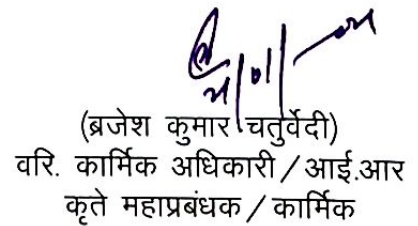 (ब्रजेश कुमार चतुर्वेदी)
वरि. कार्मिक अधिकारी / आई.आर
कृते महाप्रबंधक / कार्मिक